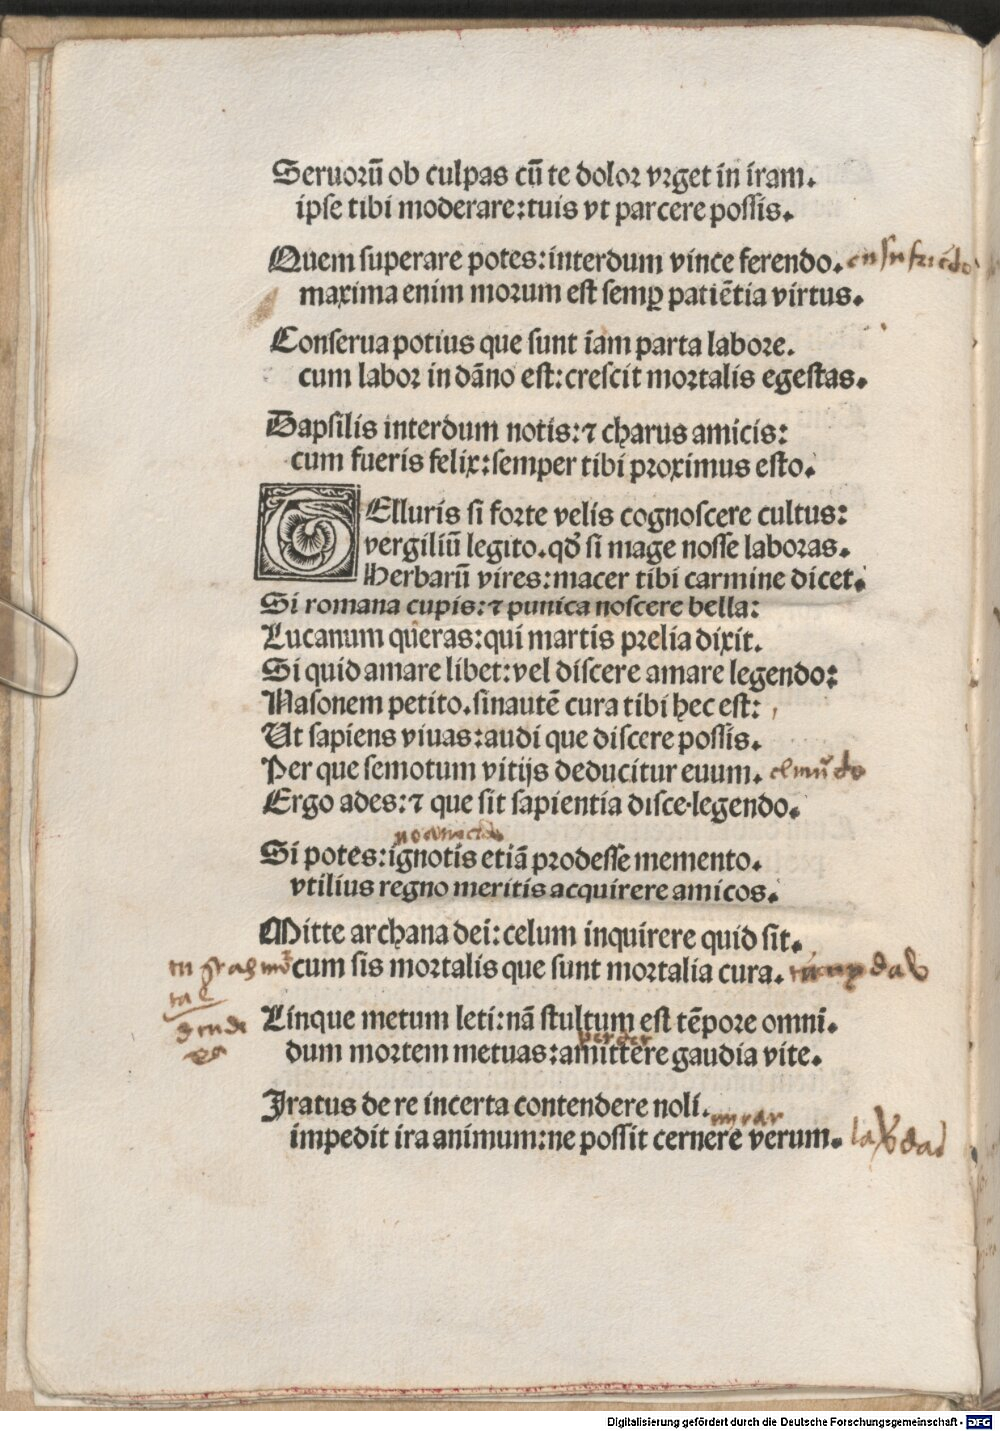 Seruorū ob culpas cū te dolor vrget in iram.
ipse tibi moderare: tuis vt parcere possis.
Quem superare potes: interdum vince ferendo. en sufriēdo
maxima enim morum est semꝑ patiētia virtus.
Conserua potius que sunt iam parta labore.
cum labor in dāno est: crescit mortalis egestas.
Dapsilis interdum notis: ⁊ charus amicis:
cum fueris felix: semper tibi proximus esto.
Telluris si forte velis cognoscere cultus:
vergiliū legito. qđ si mage nosse laboras.
Herbarū vires: macer tibi carmine dicet.
Si romana cupis: ⁊ punica noscere bella:
Lucanum queras: qui martis prelia dixit.
Si quid amare libet: vel discere amare legendo:
Nasonem petito. sinautē cura tibi hec est:
Ut sapiens viuas: audi que discere possis.
Per que semotum vitijs deducitur euum. el mūdo
Ergo ades: ⁊ que sit sapientia disce legendo.
Si potes: ignotis etiā prodesse memento.
vtilius regno meritis acquirere amicos.
Mitte archana dei: celum inquirere quid sit.
cum sis mortalis que sunt mortalia cura.
Linque metum leti: nā stultum est tēpore omni.
perder
dum mortem metuas: amittere gaudia vite.
Iratus de re incerta contendere noli.
mirar
impedit ira animum: ne possit cernere verum. la vdad
Digitalisierung gefördert durch die Deutsche Forschungsgemeinschaft - DFG